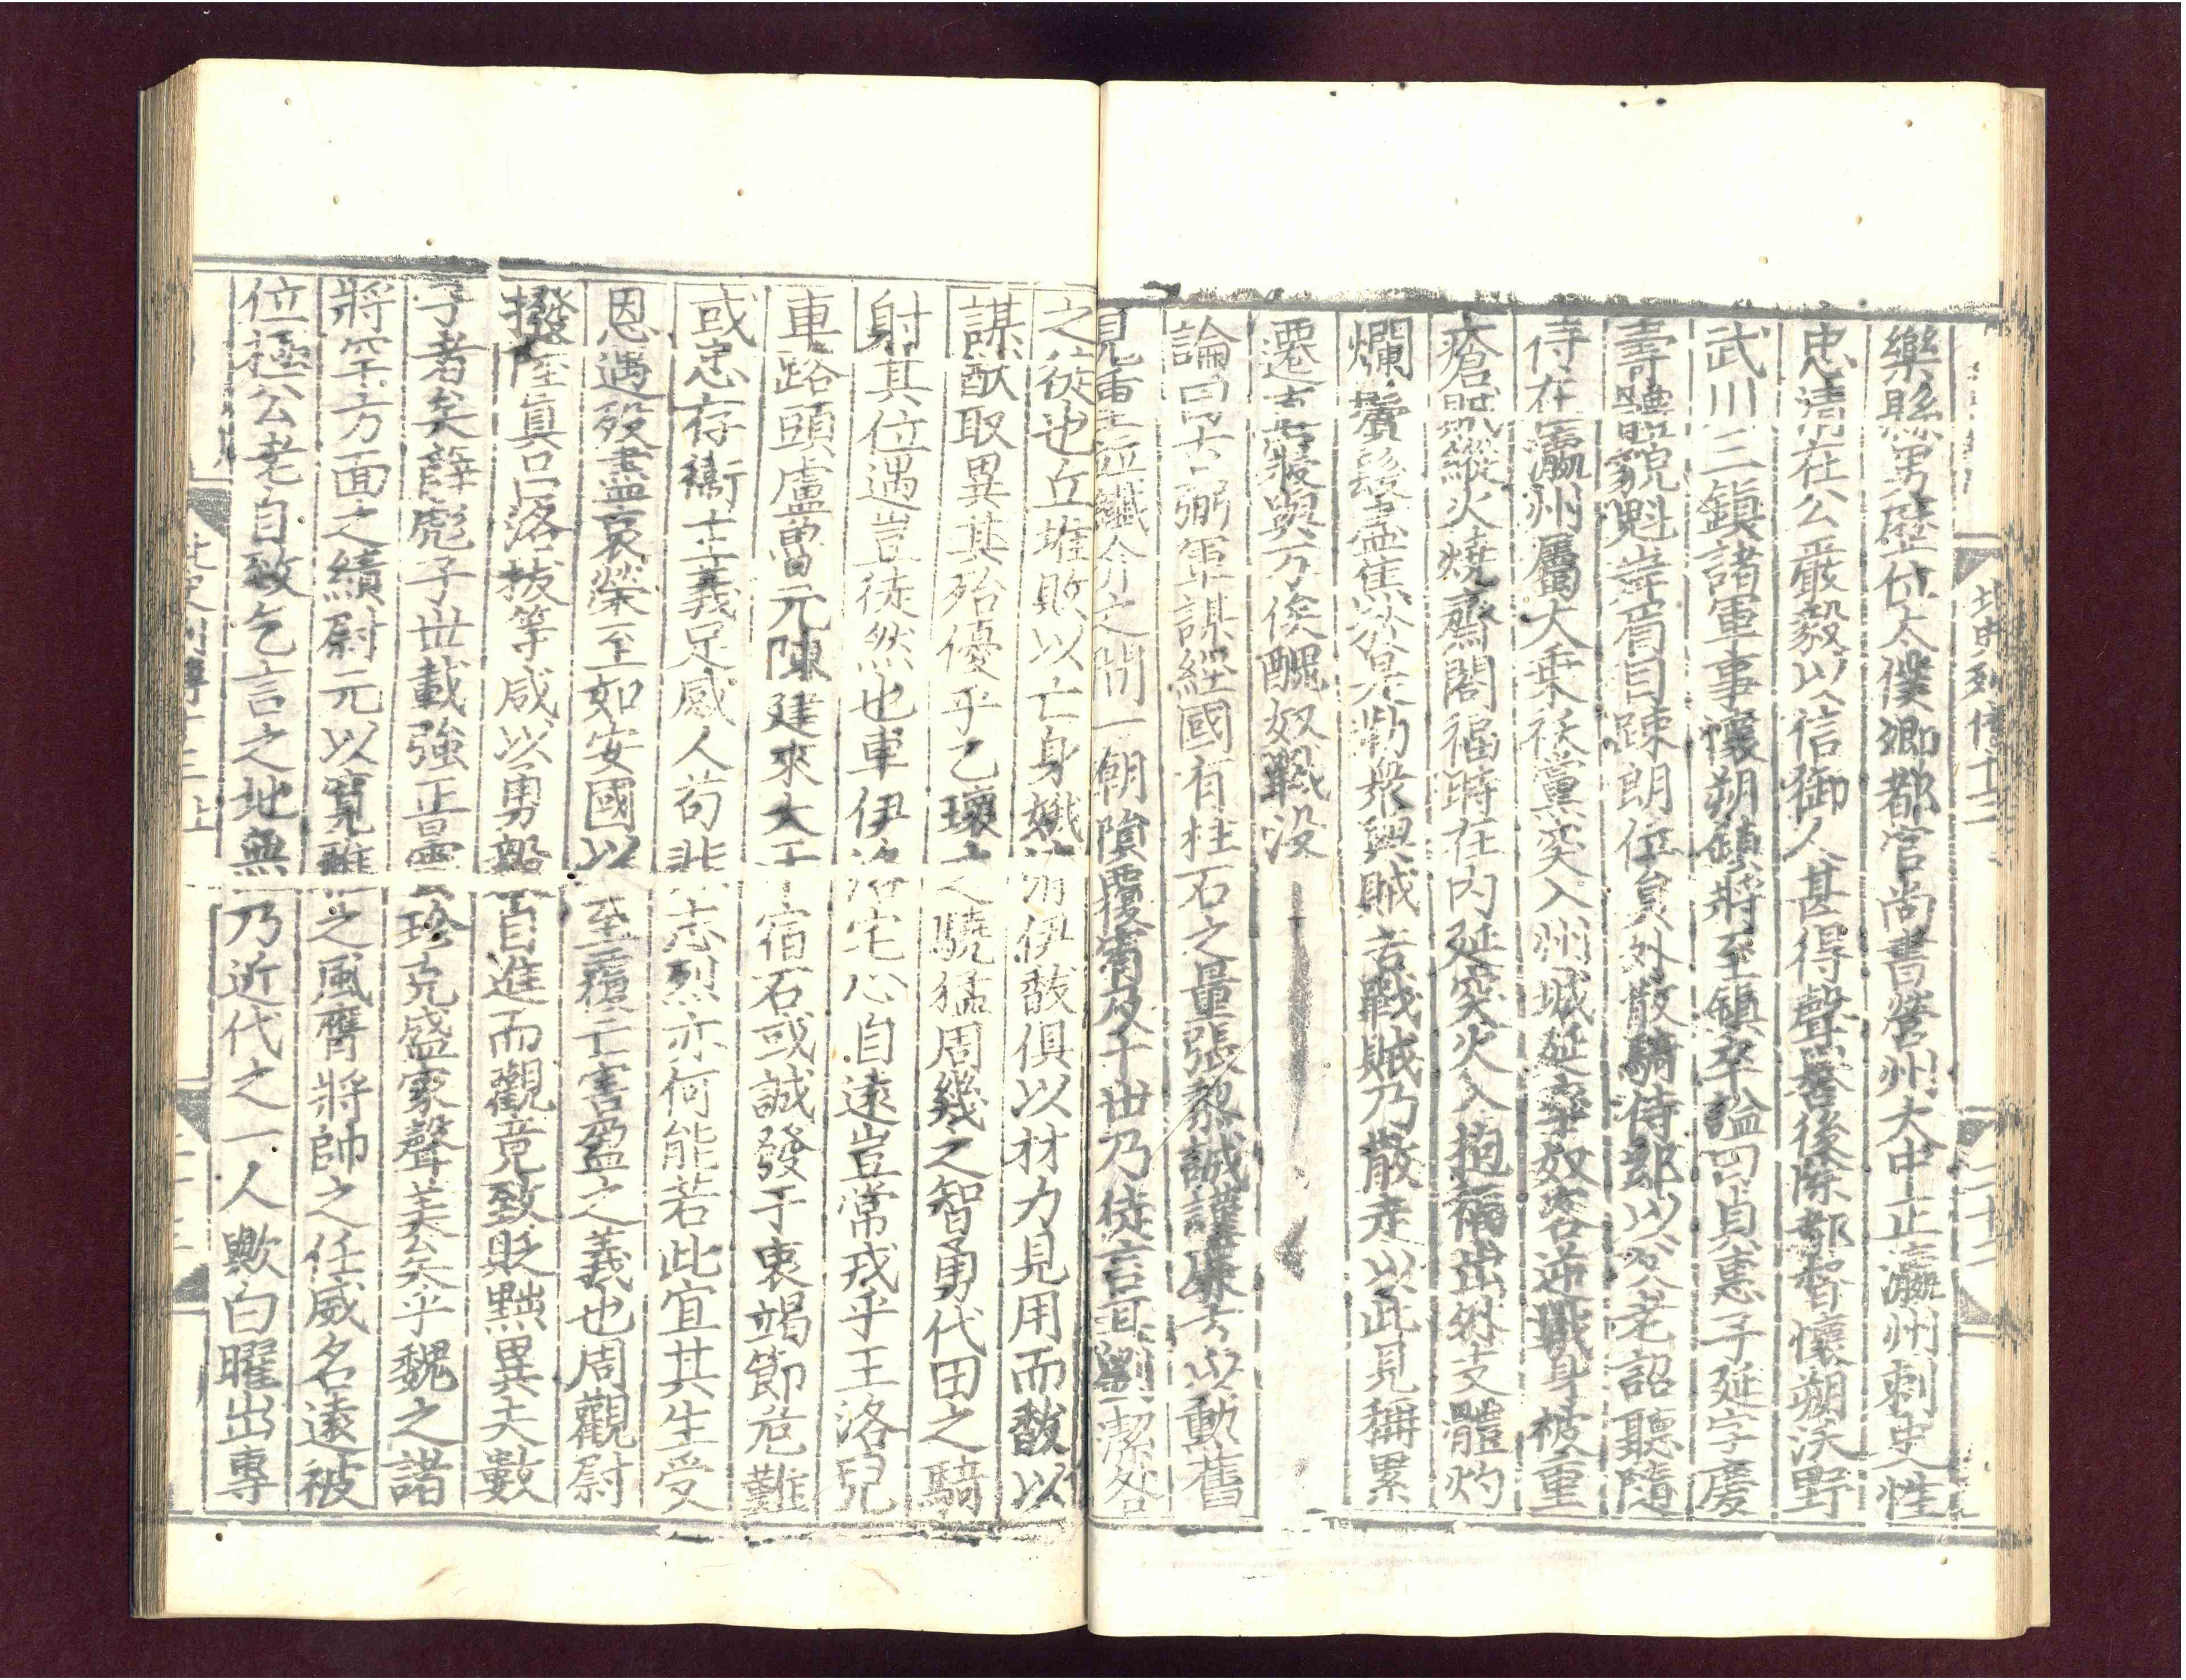 樂縣男歷位太僕卿都官尚書營州大中正瀛州刺史性
忠清在公嚴毅以信御人甚得聲譽後除都督懷朔沃野
武川三鎮諸軍事懷朔鎮將至鎮卒謚曰貞惠子延字慶
壽體貌魁岸眉目踈朗位員外散騎侍郎以父老詔聽隨
侍在瀛州屬大乗祅黨突入州城延率奴客逆戰身被重
瘡賊縱火燒齋閣福時在內延突火入抱福出外支體灼
爛鬢髮盡焦於是勒衆與賊苦戰賊乃散走以此見稱累
遷 万俟醜奴戰没
論曰 軍謀經國有柱石之量張黎誠謹廉 以勳舊
見重 纖介之間一朝隕覆宥及十世乃徒言耳劉潔咎
北史列傳十三
二十二
之徒也丘堆敗以亡身娥清伊馛俱以材力見用而馛以
謀猷取異其殆優乎乙瓌之驍猛周幾之智勇代田之騎
射其位遇豈徒然也車伊洛宅心自遠豈常戎乎王洛兒
車路頭盧魯元陳建來大千宿石或誠發于衷竭節危難
或忠存衞主義足感人苟非志烈亦何能若此宜其生受
恩遇殁盡哀榮至如安國以至覆亡害盈之義也周觀尉
撥陸真呂洛拔等咸以勇毅自進而觀竟致貶黜異夫數
子者矣薛彪子世載強正 珍克盛家聲美矣乎魏之諸
將罕方面之績尉元以寬雅之風膺將帥之任威名遠被
位極公老自致乞言之地無乃近代之一人歟白曜出專
北史列傳十三上
二十三